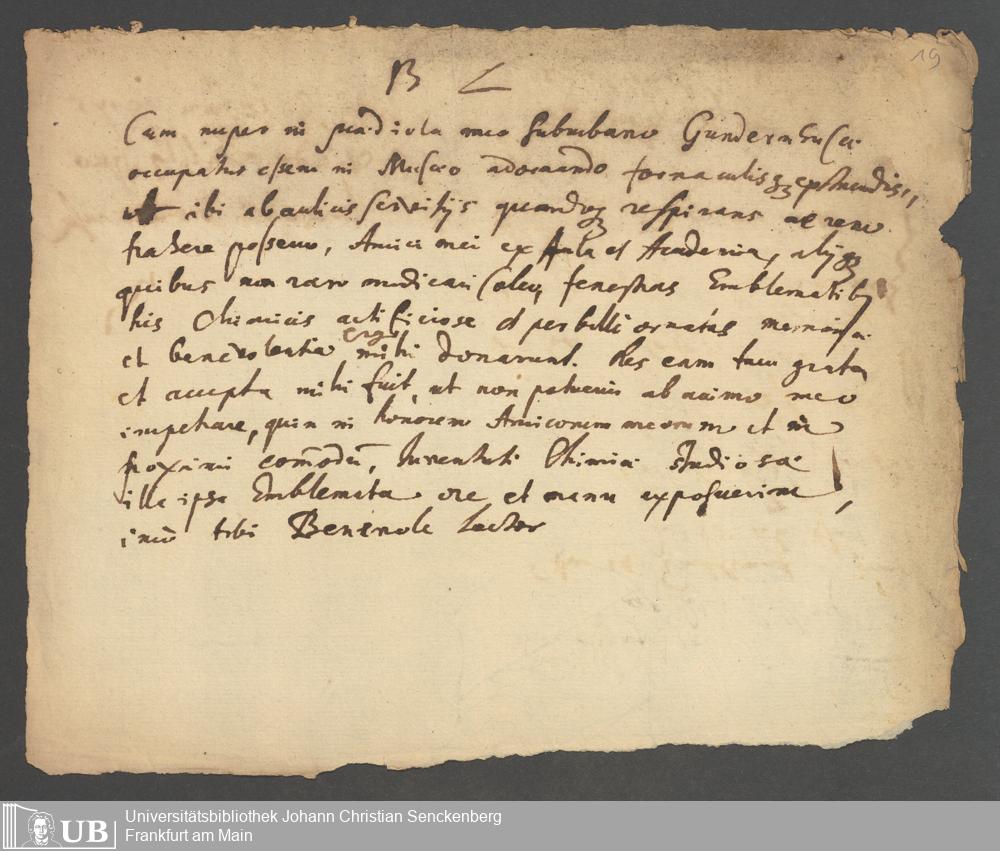 19
B L
Cum nuper in prædiolo meo suburbano Gundernhusæ
occupatus essem in Musæo adornando fornaculisq3 exstruendis,
ibi ab aulicis servitijs quandoq3 respirans aerem
trahere possem, Amici mei ex Aula et Academia, alijq3
quibus non raro medicari soleo, fenestras Emblematib9
his Chimicis artificiose et perbelle ornatas memoria
et benevolentia ergo mihi donarunt. Res eam tam grata
et accepta mihi fuit, ut non potuerim ab animo meo
impetrare, quin in honorem Amicorum meorum et in
proximi com̄odū, Iuventuti Chimiæ studiosæ
illa ipsa Emblemata ore et manu exposuerim,
imo tibi Benevole Lector
UB
Universitätsbibliothek Johann Christian Senckenberg
Frankfurt am Main